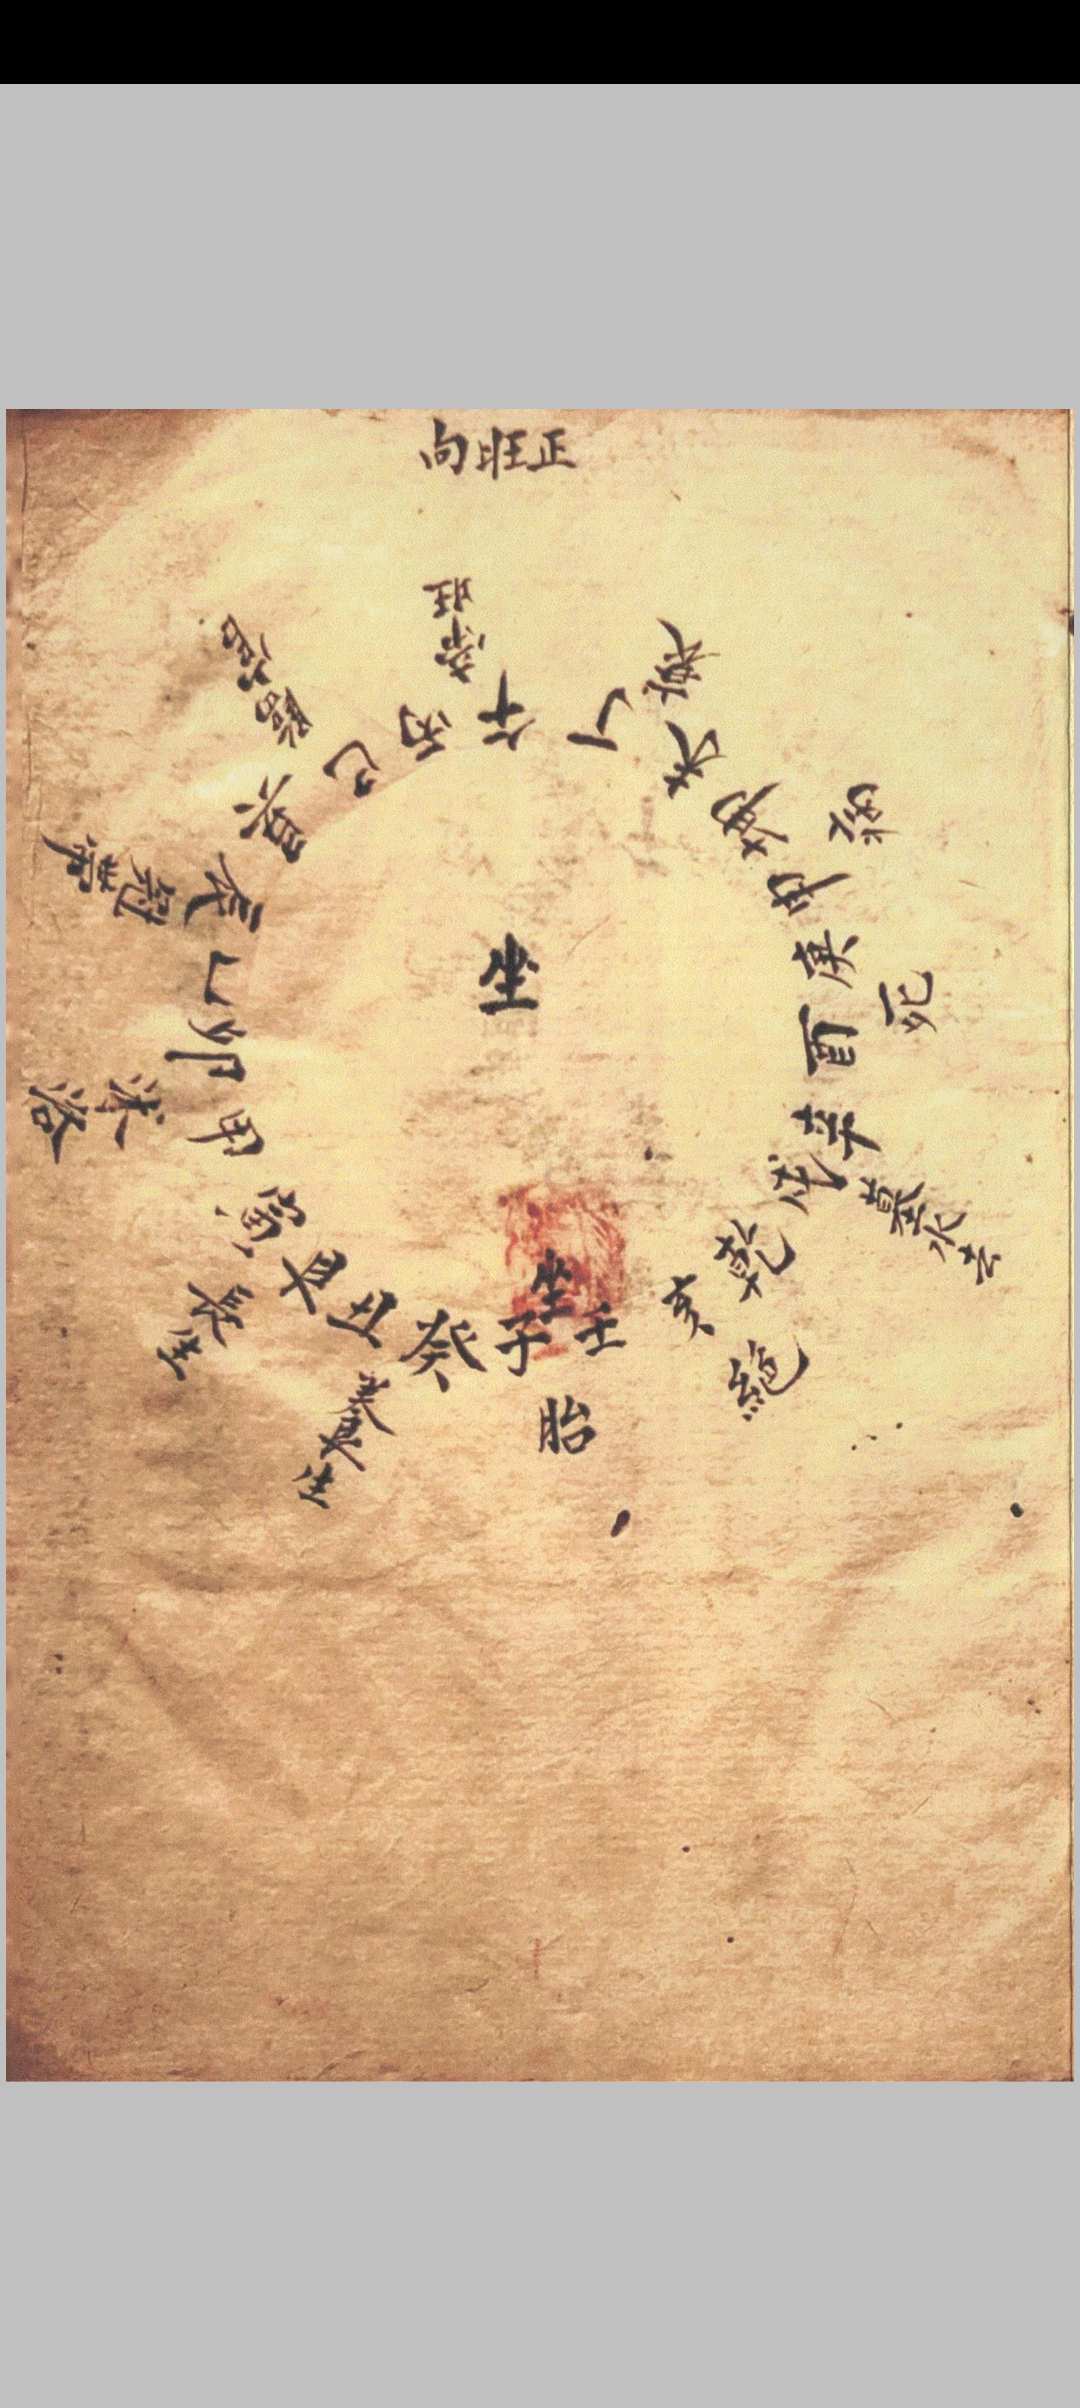 正旺向
帝旺
臨官
冠帶
沐浴
長生
養生
胎
絕
墓水去
死
病
衰
午
丁
未
坤
申
庚
酉
辛
戌
乾
亥
壬
子
癸
丑
艮
寅
甲
卯
乙
辰
巽
巳
丙
坐
坐